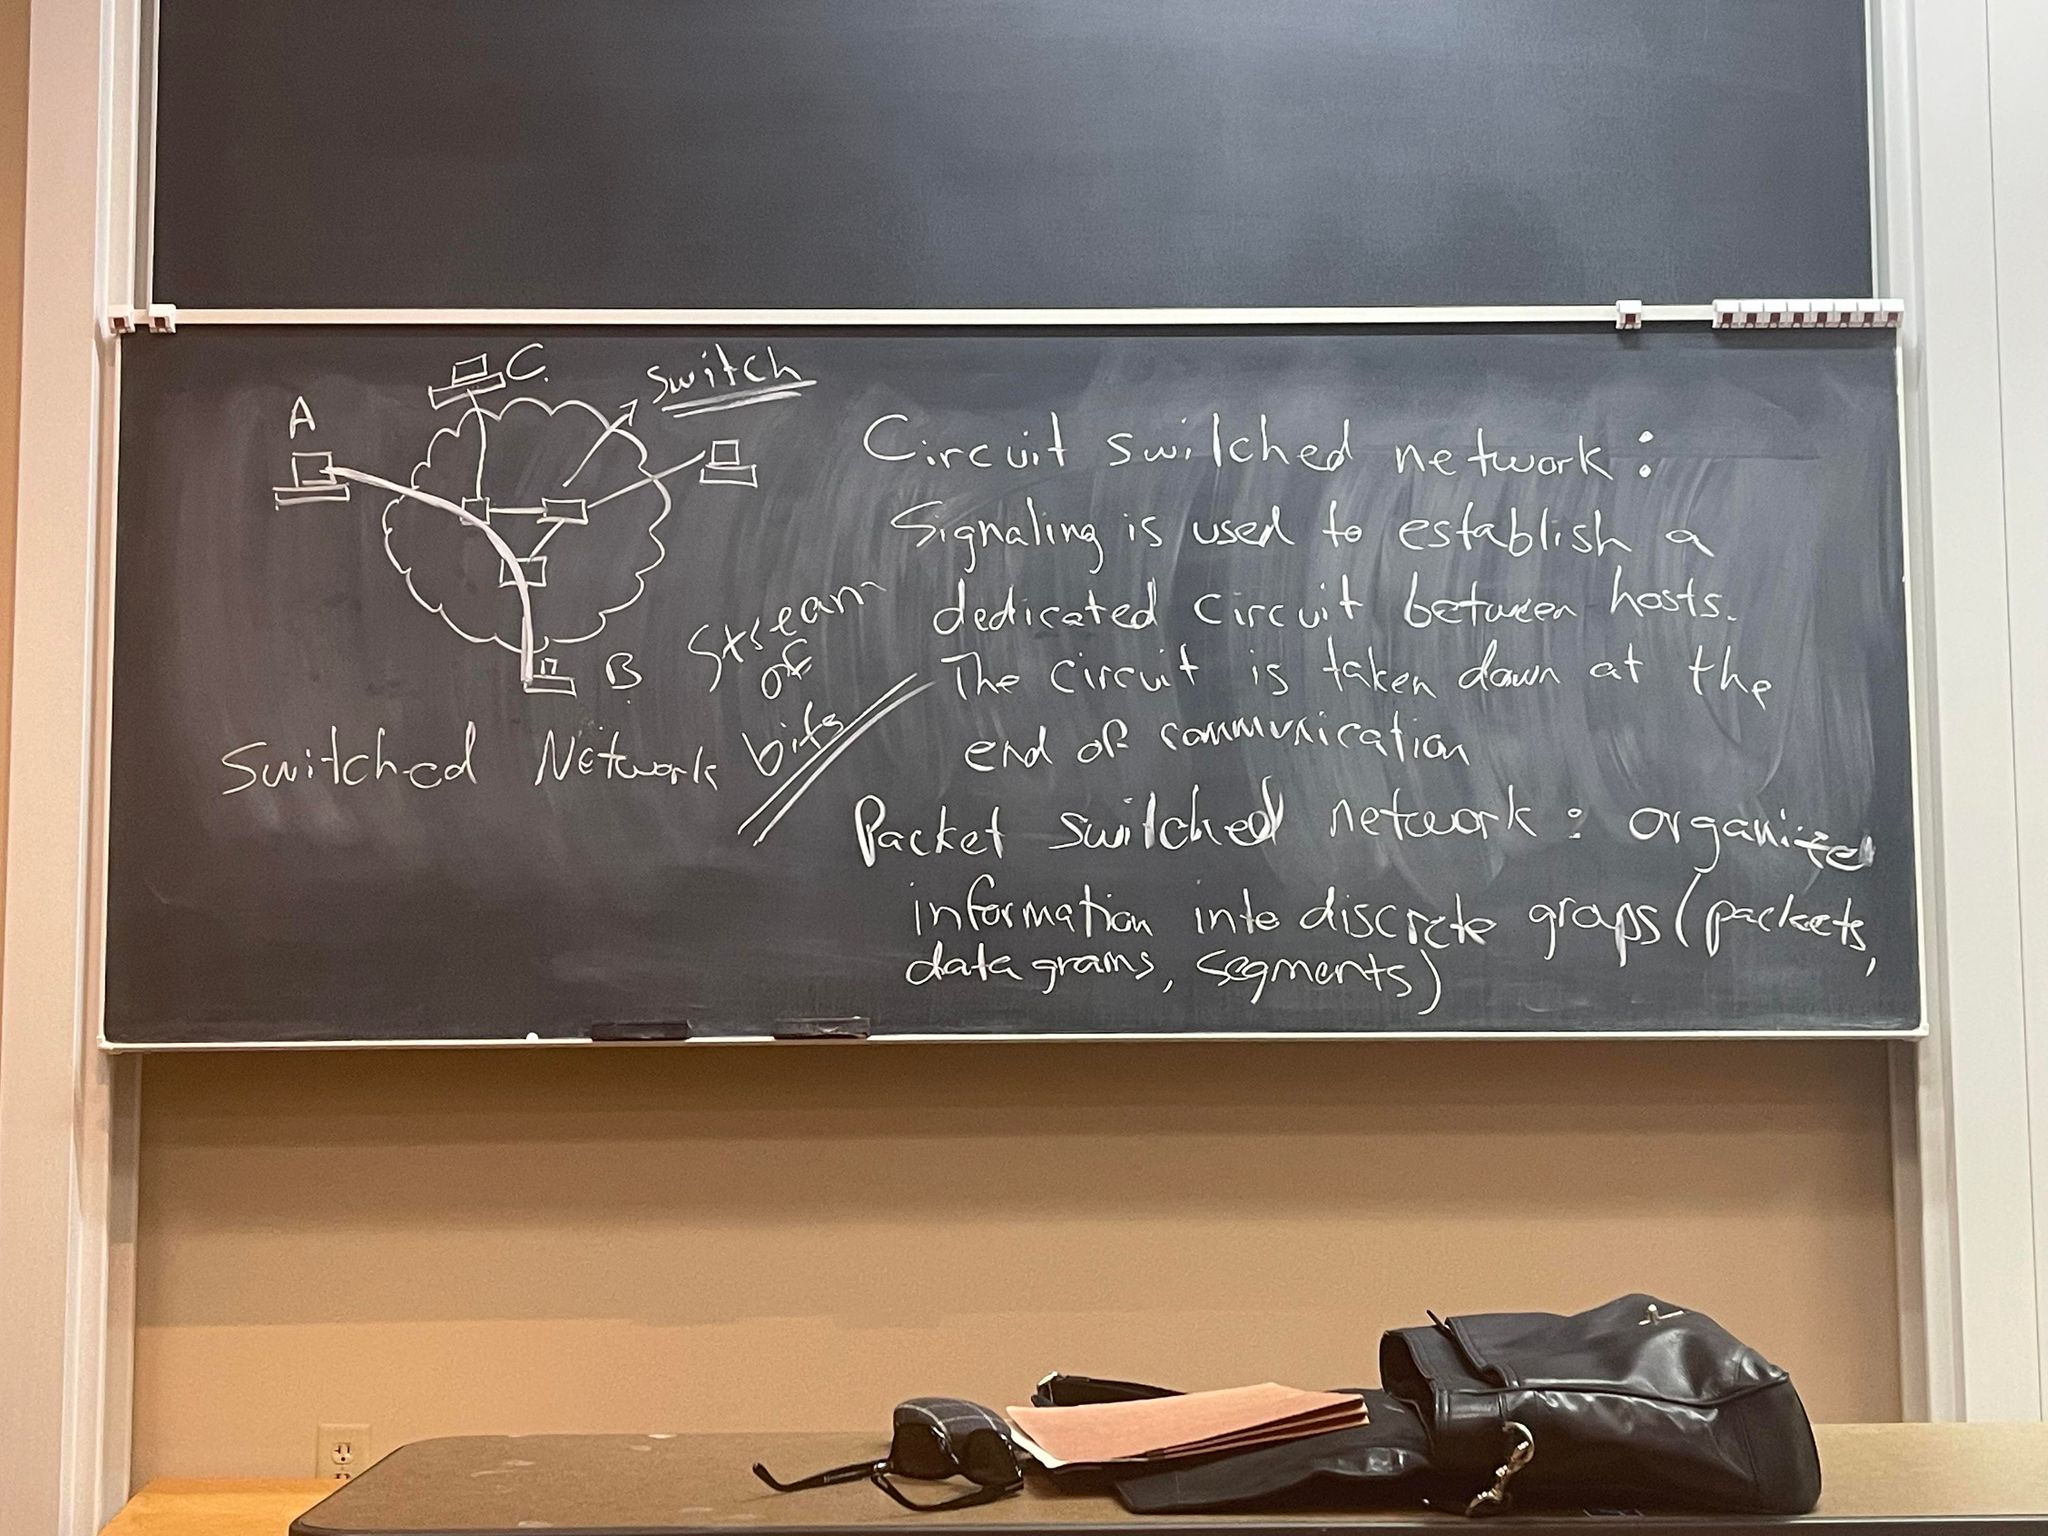 A
C.
Switch
B
Switched Network
Stream
of
bits
Circuit switched network:
Signaling is used to establish a
dedicated circuit between hosts.
The circuit is taken down at the
end of communication
Packet switched network: organize
information into discrete groups (packets,
datagrams, segments)